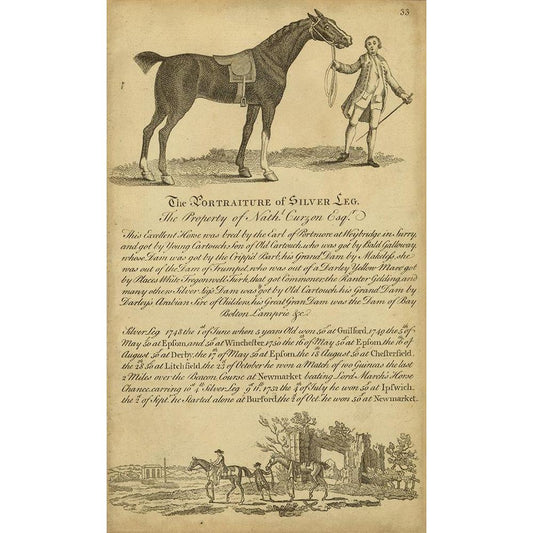 33
The PORTRAITURE of SILVER LEG.
The Property of Nath.l Curzon Esq.r
This Excellent Horse was bred by the Earl of Portmore at Weybridge in Surry,
and got by Young Cartouch, Son of Old Cartouch, who was got by Bald Galloway,
whose Dam was got by the Cripple Barb, his Grand Dam by Makeless, she
was out of the Dam of Trumpet, who was out of a Darley Yellow Mare got
by Places White Turk, that got Commoner the Ranter Gelding, and
many others. Silver Legs Dam was got by Old Cartouch, his Grand Dam by
Darleys Arabian Sire of Childers, his Great Gran Dam was the Dam of Bay
Bolton Lamprie &c.
Silver Leg 1748 the 1st of June when 5 years Old won 50 at Guilford, 1749 the 5th of
May 50 at Epsom, and 50 at Winchester, 1750 the 16th of May 50 at Epsom, the 16th of
August 50 at Derby, the 17th of May 50 at Epsom, the 13 August 50 at Chesterfield.
the 28 50 at Litchfield, the 23 of October he won a Match of 100 Guineas the last
2 Miles over the Beacon Course at Newmarket beating Lord March's Horse
Chance, carring 10st 4lb Silver Leg 9st 1752 the of July he won 50 at Ipswich,
the 2d of Sept.r he Started alone at Burford, the 2d of Oct.r he won 50 at Newmarket.